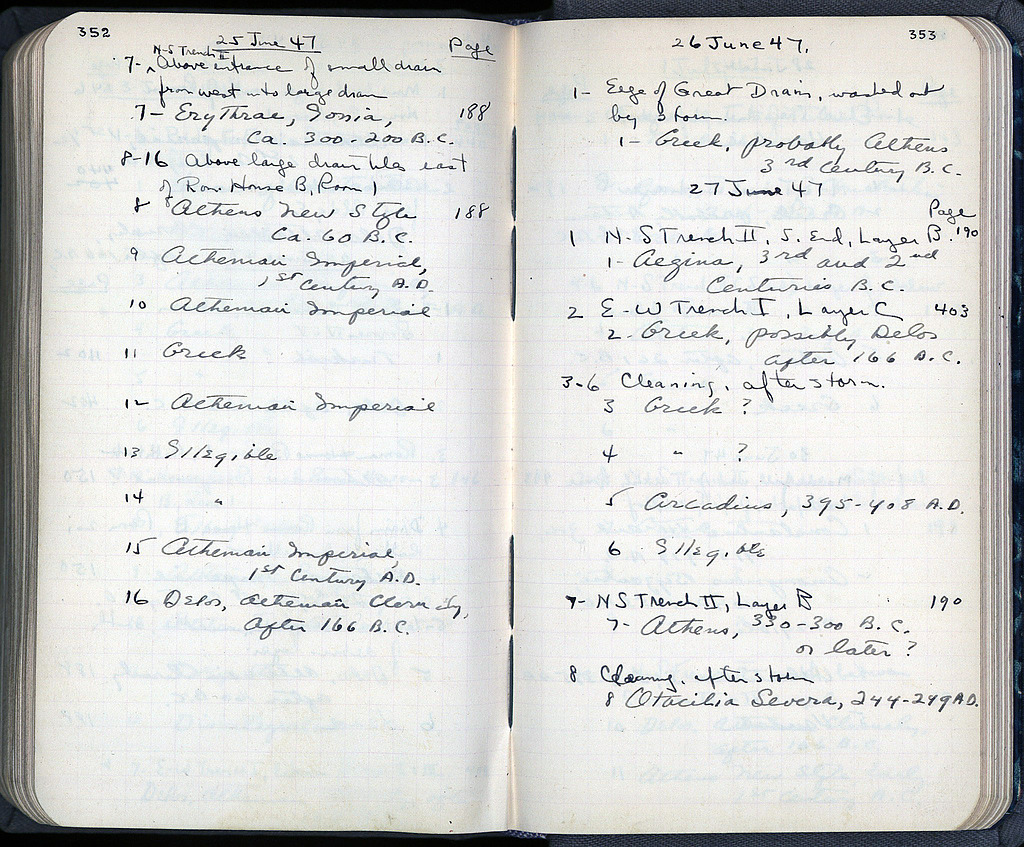 352
25 June 47
Page
N-S Trench II
7- Above entrance of small drain
from west into large drain
7- Erythrae, Ionia, 188
Ca. 300-200 B.C.
8-16 Above large drain tiles east
of Row House B, Room 1
8 Athens New Style 188
Ca. 60 B.C.
9 Athenian Imperial,
1st Century A.D.
10 Athenian Imperial
11 Greek
12 Athenian Imperial
13 Illegible
14 "
15 Athenian Imperial,
1st Century A.D.
16 Delos, Athenian Cleruchy,
After 166 B.C.
353
26 June 47.
1- Edge of Great Drain, washed out
by storm.
1- Greek, probably Athens
3rd century B.C.
27 June 47
Page
1 N-S Trench II, S. End, Layer B. 190
1- Aegina, 3rd and 2nd
Centuries B.C.
2 E-W Trench I, Layer C 403
2- Greek, possibly Delos
after 166 B.C.
3-6 Cleaning, after storm.
3 Greek ?
4 " ?
5 Arcadius, 395-408 A.D.
6 Illegible
7- NS Trench II, Layer B 190
7- Athens, 330-300 B.C.
or later ?
8 Cleaning, after storm
8 Otacilia Severa, 244-249 A.D.